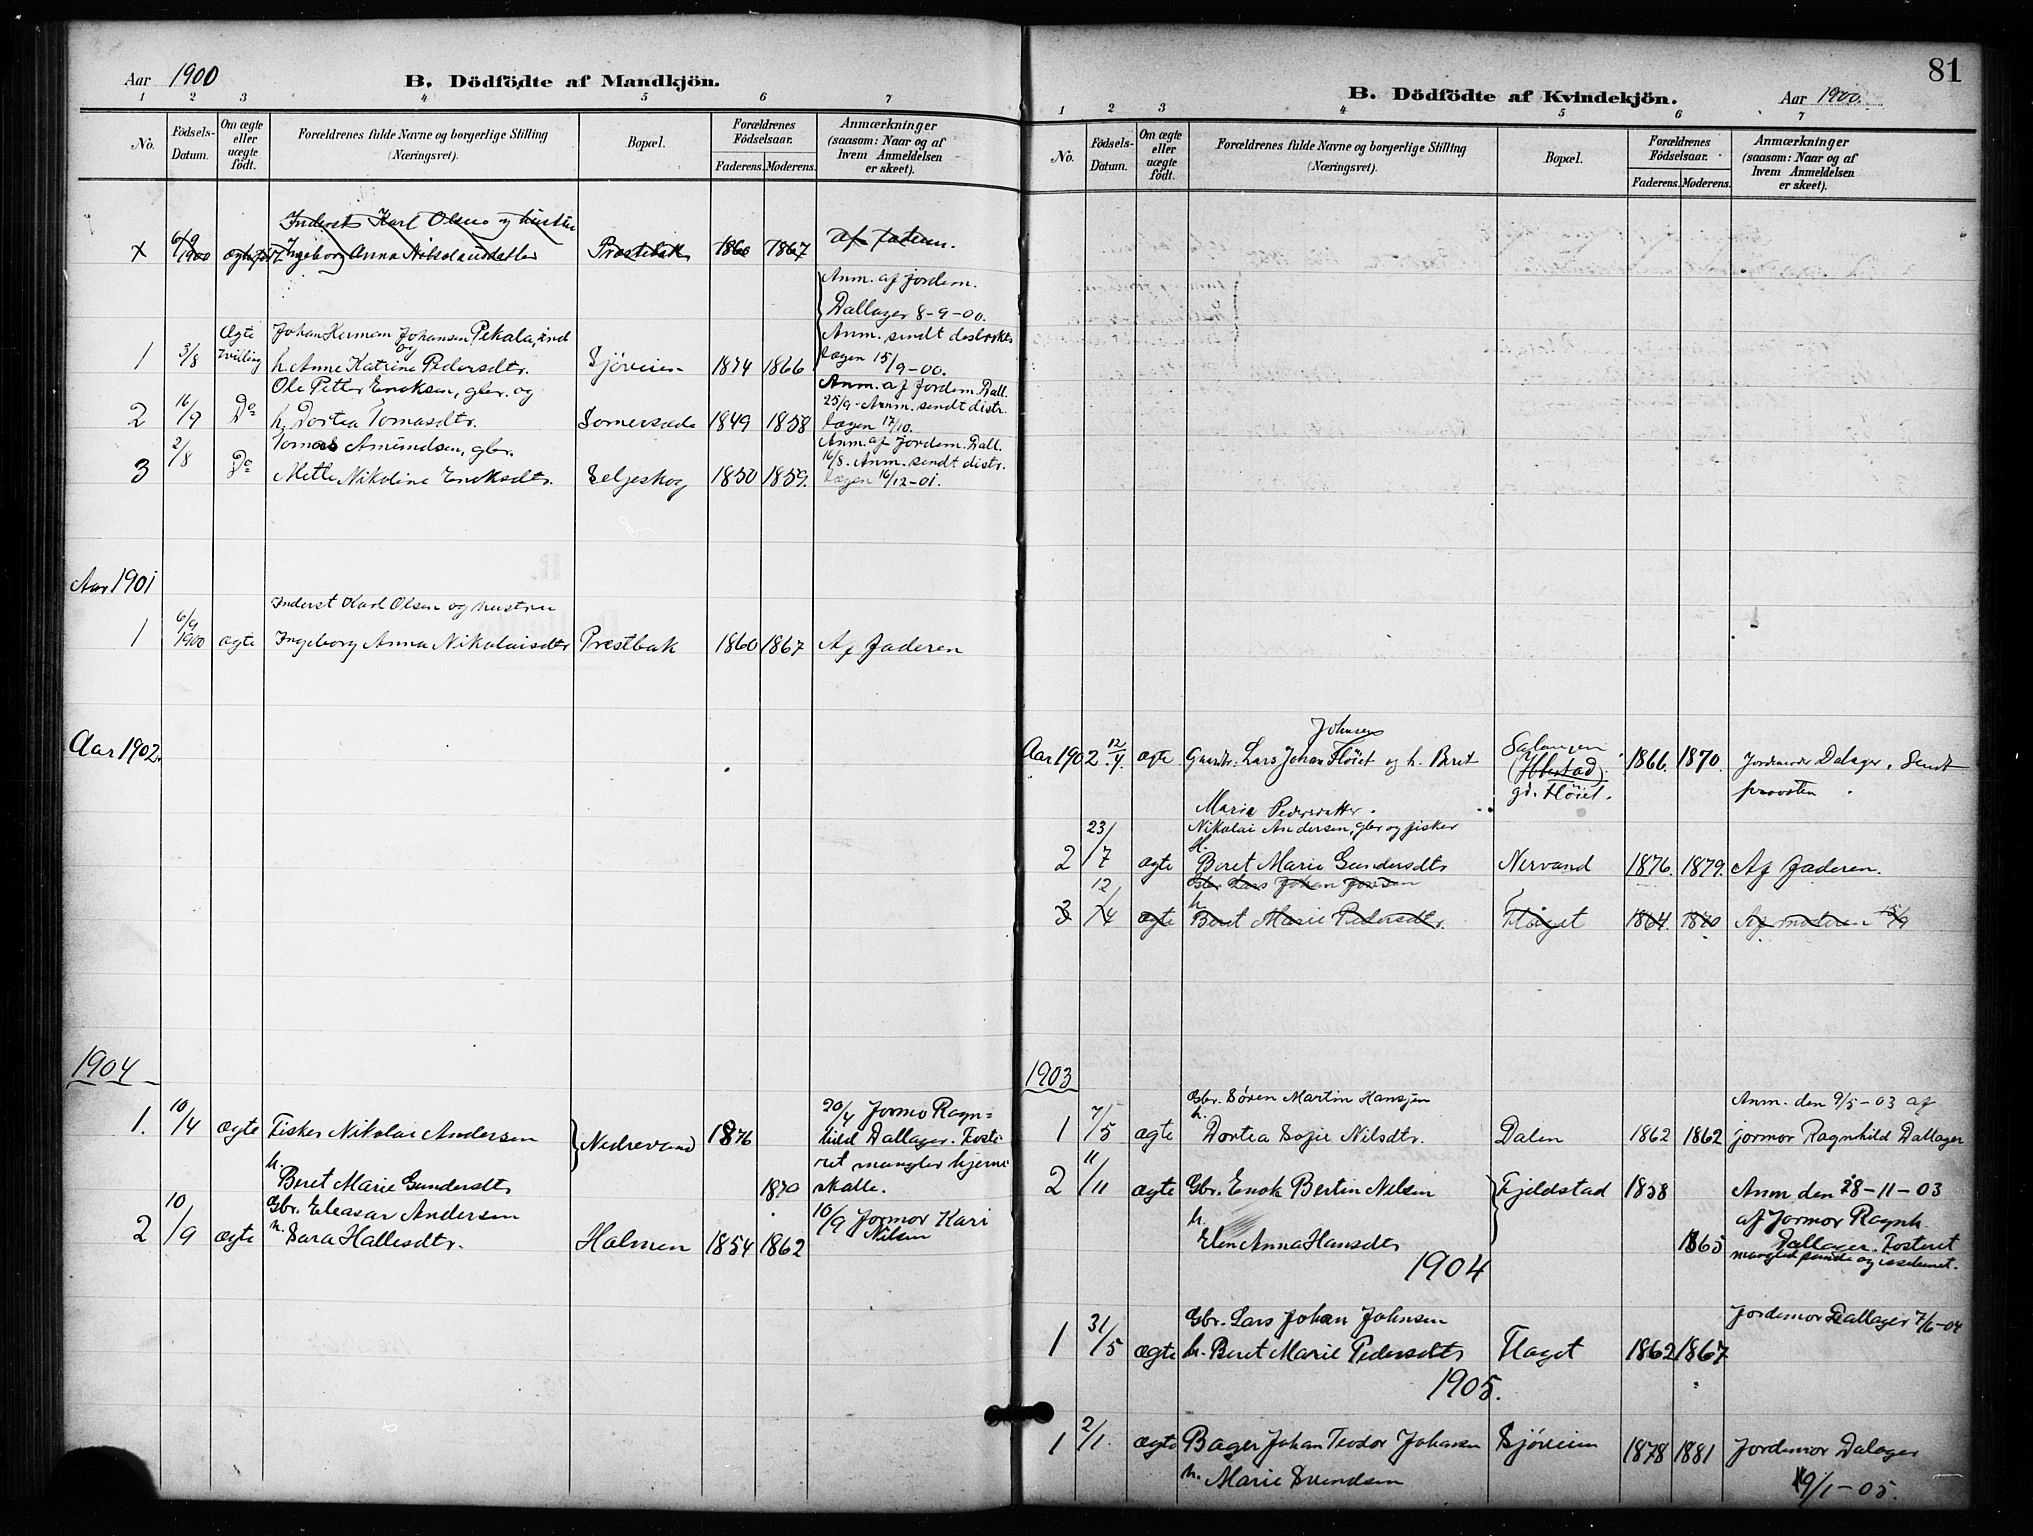 Aar 1900
B. Dödfödte af Mandkjön.
1 2 3 4 5 6 7
No.
Födsels-Datum.
Om ægte eller uægte födt.
Forældrenes fulde Navne og borgerlige Stilling (Næringsvei).
Bopæl.
Forældrenes Födselsaar.
Faderens. Moderens.
Anmærkninger (saasom: Naar og af hvem Anmeldelsen er skeet).
Inderst Karl Olsen og hustru
6/9 1900 ægte Ingeborg Anna Nikolaisdatter Præstebak 1860 1867 af faderen.
Anm. af jordem.
Dallager 8-9-00.
Ægte Johan Herman Johansen Pekala, ind Anm. sendt distrikts
1 3/8 tvilling og h. Anne Katrine Pedersdtr. Sjøveien 1874 1866 lægen 15/9-00.
Ole Petter Enoksen, gbr. og Anm. af jordem. Dall.
2 16/9 Do h. Dortea Tomasdtr. Somersæde 1849 1858 25/9 - Anm. sendt distr. lægen 17/10.
Tomas Amundsen, gbr. Anm. af jordem. Dall.
3 2/8 Do Mette Nikoline Enoksdtr. Seljeskog 1850 1859. 16/8. Anm. sendt distr. lægen 16/12-01.
Aar 1901
Inderst Karl Olsen og hustru
1 6/9 1900 ægte Ingeborg Anna Nikolaisdtr Prestbak 1860 1867 Af Faderen
Aar 1902.
1904
1. 10/4 ægte Fisker Nikolai Andersen Nedrevand 1876 20/4 Jormo Ragn=
hild Dallager. Foste-
ret mangler hjerne
h.
Beret Marie Gundersdtr 1870 skalle.
Gbr. Eleasar Andersen
2 10/9 ægte h. Sara Hallesdtr. Holmen 1854 1862 10/9 Jormor Kari Nilsen
81
B. Dödfödte af Kvindekjön.
Aar 1900.
1 2 3 4 5 6 7
No.
Födsels-Datum.
Om ægte eller uægte födt.
Forældrenes fulde Navne og borgerlige Stilling (Næringsvei).
Bopæl.
Forældrenes Födselsaar.
Faderens. Moderens.
Anmærkninger (saasom: Naar og af hvem Anmeldelsen er skeet).
Johnsen
Aar 1902 12/4 ægte Gaardbr. Lars Johan Fløiet og h. Beret Salangen (Ibestad) gd. Fløiet. 1866. 1870. Jordemoder Dalager. Sendt provsten.
Maria Pedersdatter.
Nikolai Andersen, gbr og fisker
h.
2 23/7 ægte Beret Marie Gundersdtr Nervand 1876. 1879. Af Faderen.
Gbr Lars Johan
h.
3 12/4 ægte Beret Marie Pedersdtr. Fløiget 1864. 1870 Af moderen 15/9
1903
Gbr. Sören Martin Hansen Anm. den 9/5-03 af
h.
1 7/5 ægte Dortea Sofie Nilsdtr. Dalen 1862 1862 jormor Ragnhild Dallager
2 11/11 ægte Gbr. Enok Bertin Nilsen Fjeldstad 1858 Anm den 28-11-03
h. af Jormor Ragnh.
Elen Anna Hansdtr 1865 Dallager. Fosteret
manglede pande og issebenet.
1904
Gbr. Lars Johan Johnsen Jordemor Dallager 7/6-04
1 31/5 ægte h. Beret Marie Pedersdtr Fløget 1862 1867
1905.
1 2/1. ægte Bager Johan Teodor Johansen Sjöveien 1878 1881 Jordemor Dalager
h. Marie Svendsen 9/1-05.